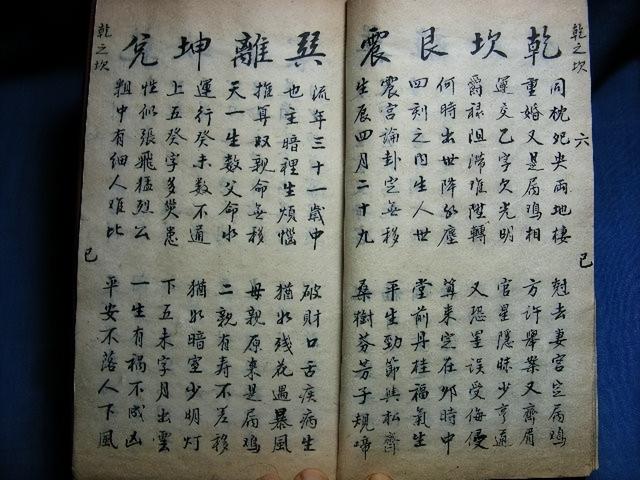 乾之坎
六
已
乾坎艮震
同枕死央兩地棲 尅去妻宮定屬鸡
重婚又是屬鸡相 方許舉案又齊眉
運交乙字欠光明 官星隱昧少亨通
爵祿阻滯难陞轉 又恐星误受侮慢
何時出世降紅塵 算來定在卯時中
四刻之内生人世 堂前丹桂福氣生
震宫論卦定無移 平生勁節與松齊
生辰四月二十九 桑樹芬芳子規啼
巽離坤兌
流年三十一歲中 破財口舌疾病生
也主暗裡生煩惱 犹如残花遇暴風
推算双親命無移 母親原来是屬鸡
天一生数父命水 二親有寿不差移
運行癸未数不通 犹如暗室少明灯
上五癸字多災患 下五未字月出雲
性似張飛猛烈公 一生有禍不成凶
粗中有細人难比 平安不落人下風
乾之坎
已